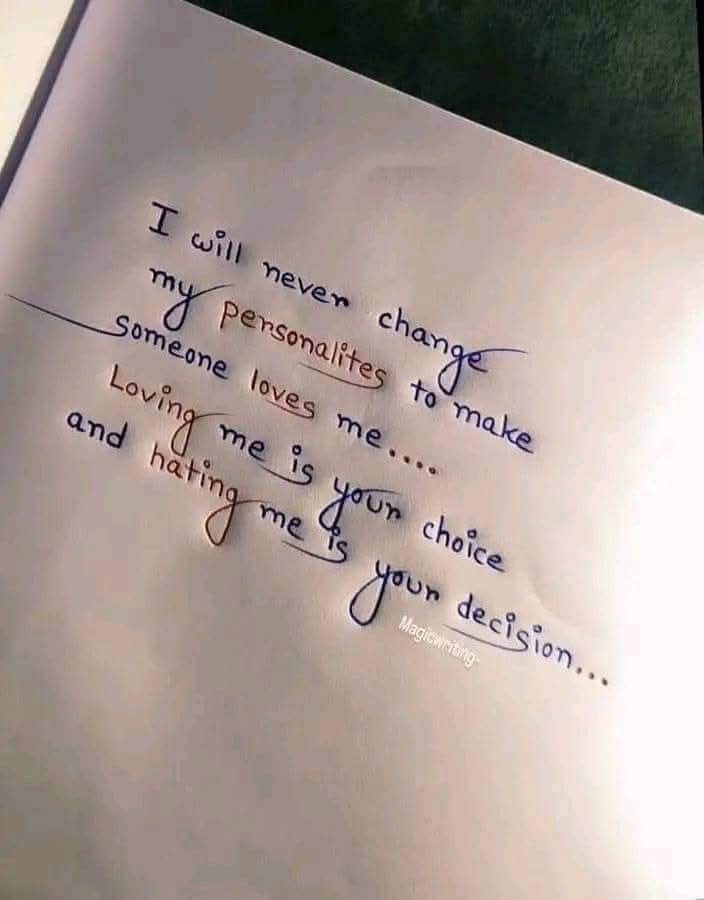 I will never change
my personalites to make
someone loves me....
Loving me is your choice
and hating me is your decision...
Magicwriting-